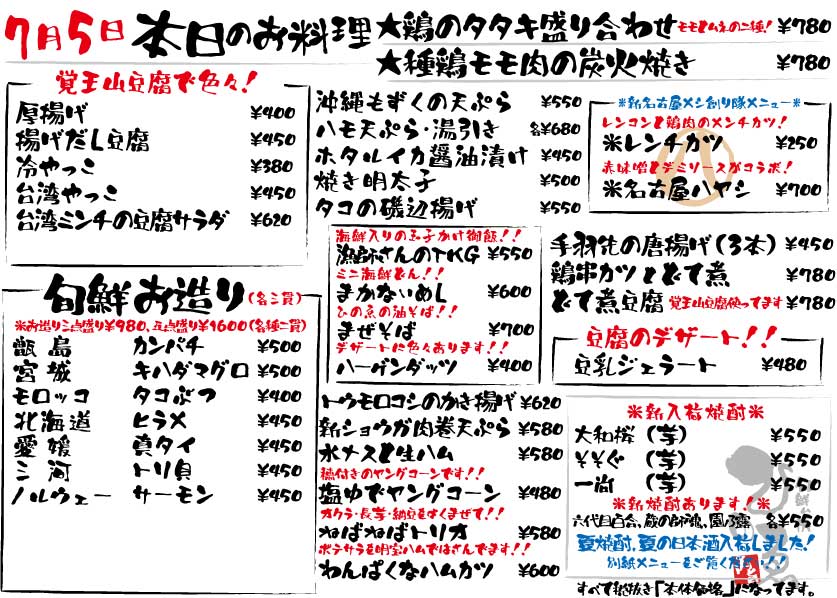 7月5日 本日のお料理
★鶏のタタキ盛り合わせ モモとムネの二種! ¥780
★種鶏モモ肉の炭火焼き ¥780
覚王山豆腐で色々!
厚揚げ ¥400
揚げだし豆腐 ¥450
冷やっこ ¥380
台湾やっこ ¥450
台湾ミンチの豆腐サラダ ¥620
旬鮮お造り(各三貫)
※お造り三点盛り¥980、五点盛り¥1600(各種二貫)
甑島 カンパチ ¥500
宮城 キハダマグロ ¥500
モロッコ タコぶつ ¥400
北海道 ヒラメ ¥450
愛媛 真タイ ¥450
三河 トリ貝 ¥450
ノルウェー サーモン ¥450
沖縄もずくの天ぷら ¥550
ハモ天ぷら・湯引き 各¥680
ホタルイカ醤油漬け ¥450
焼き明太子 ¥500
タコの磯辺揚げ ¥550
海鮮入りの玉子かけ御飯!!
漁師さんのTKG ¥550
ミニ海鮮どん!!
まかないめし ¥600
ひのゑの油そば!!
まぜそば ¥700
デザートに色々あります!!
ハーゲンダッツ ¥400
トウモロコシのかき揚げ ¥620
新ショウガ肉巻天ぷら ¥580
水ナスと生ハム ¥580
穂付きのヤングコーンです!!
塩ゆでヤングコーン ¥480
オクラ・長芋・納豆をよくまぜて!!
ねばねばトリオ ¥580
ポテサラを明宝ハムではさんでます!!
わんぱくなハムカツ ¥600
※新名古屋メシ創り隊メニュー※
レンコンと鶏肉のメンチカツ!
※レンチカツ ¥250
赤味噌とデミソースがコラボ!
※名古屋ハヤシ ¥700
手羽先の唐揚げ(3本) ¥450
鶏串カツとどて煮 ¥780
どて煮豆腐 覚王山豆腐使ってます ¥780
豆腐のデザート!!
豆乳ジェラート ¥480
※新入荷焼酎※
大和桜(芋) ¥550
そそぐ(芋) ¥550
一尚(芋) ¥550
※新焼酎あります!※
六代目百合、蔵の師魂、園乃露 各¥550
夏焼酎、夏の日本酒入荷しました!
別紙メニューをご覧ください!!
すべて税抜き「本体価格」になってます。